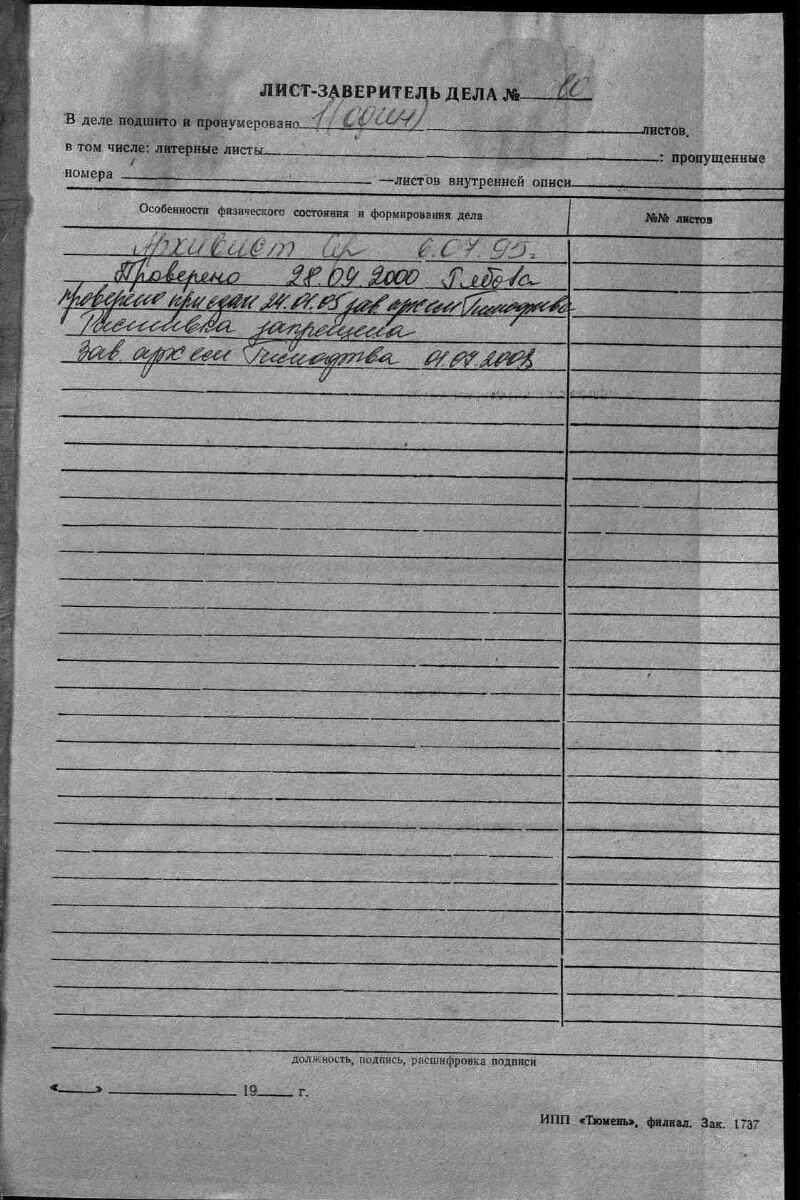 ЛИСТ-ЗАВЕРИТЕЛЬ ДЕЛА № 80
В деле подшито и пронумеровано 1 (один) листов.
в том числе: литерные листы : пропущенные
номера —листов внутренней описи
Особенности физического состояния и формирования дела №№ листов
Архивист 6.07.95.
Проверено 28.09.2000
проверено при сдаче 24.01.05 зав. арх
Расшивка запрещена
Зав. арх
должность, подпись, расшифровка подписи
« » 19 г.
ИПП «Тюмень», филиал. Зак. 1737